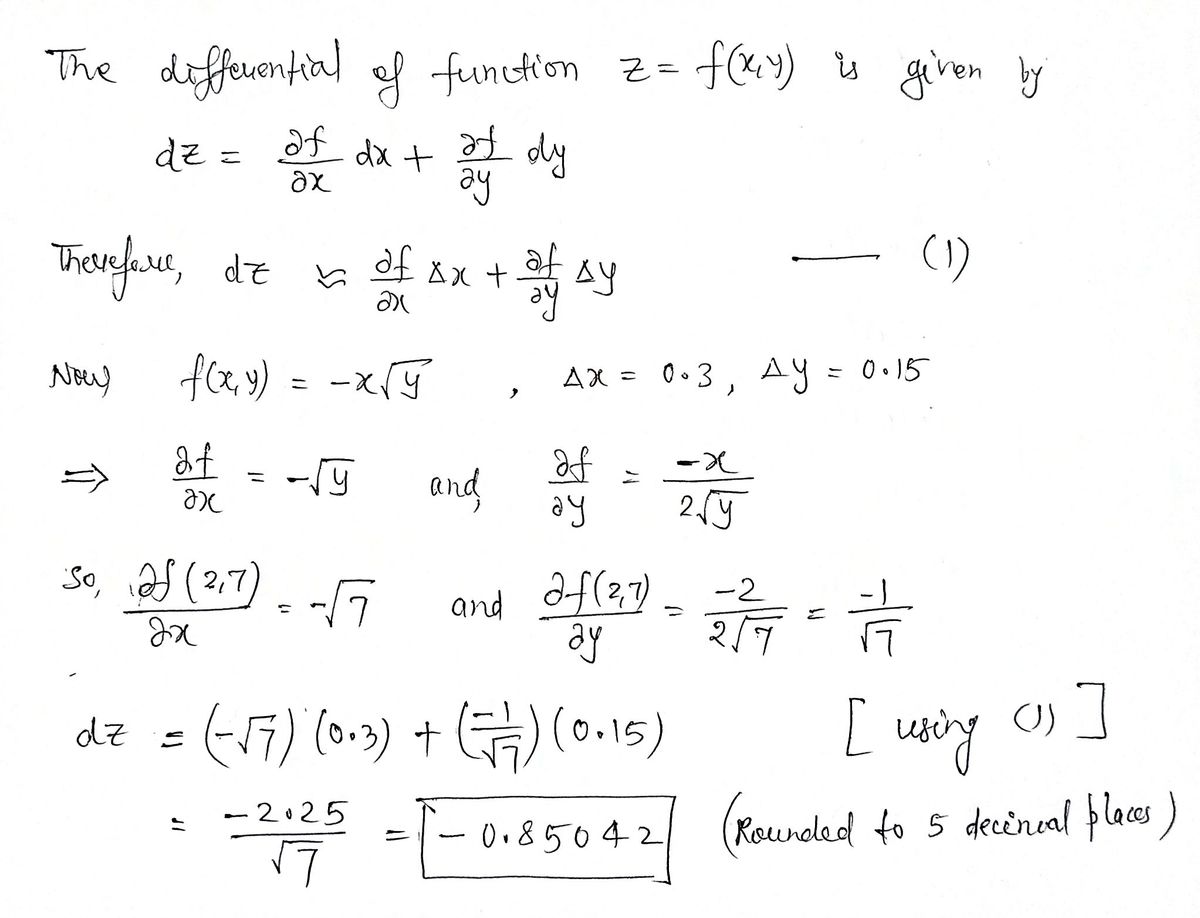 The differential of function z = f(x,y) is given by
dz = ∂f/∂x dx + ∂f/∂y dy
Therefore, dz ≈ ∂f/∂x Δx + ∂f/∂y Δy —— (1)
Now f(x,y) = -x√y , Δx = 0.3, Δy = 0.15
⇒ ∂f/∂x = -√y and, ∂f/∂y = -x/2√y
So, ∂f(2,7)/∂x = -√7 and ∂f(2,7)/∂y = -2/2√7 = -1/√7
dz = (-√7) (0.3) + (-1/√7) (0.15) [using (1)]
= -2.25/√7 = -0.85042 (Rounded to 5 decimal places)